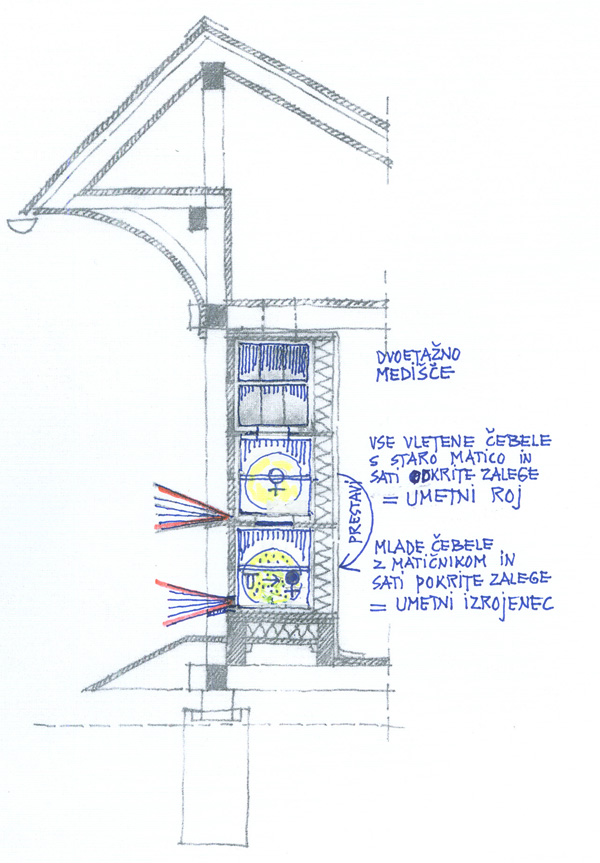 DVOETAŽNO
MEDIŠČE
VSE VLETENE ČEBELE
S STARO MATICO IN
SATI ODKRITE ZALEGE
= UMETNI ROJ
PRESTAVI
MLADE ČEBELE
Z MATIČNIKOM IN
SATI POKRITE ZALEGE
= UMETNI IZROJENEC